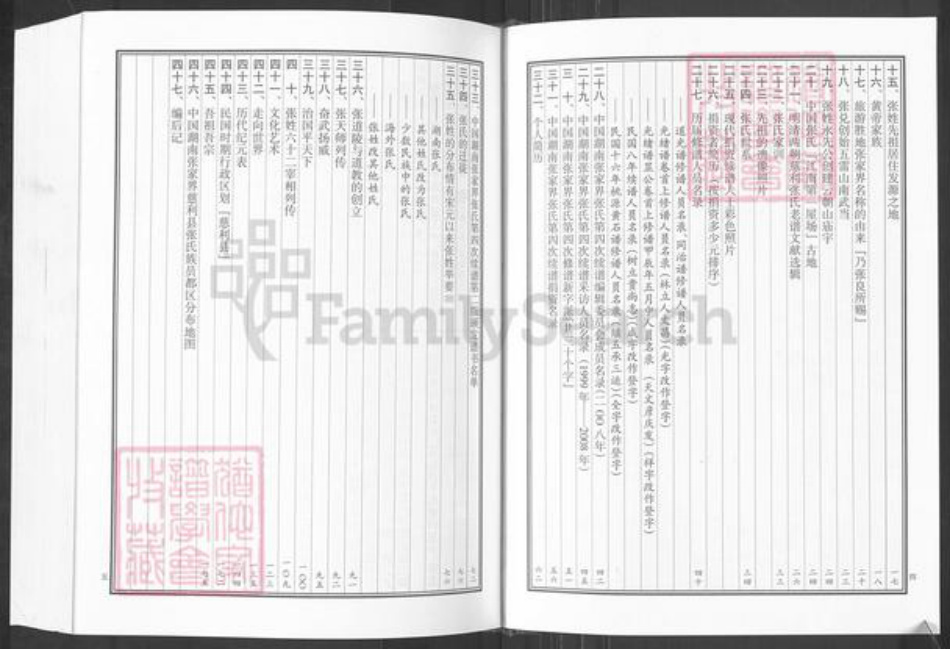 十五、张姓先祖居住发源之地 一七
十六、黄帝家族 一八
十七、旅游胜地张家界名称的由来『乃张良所赐』 二十
十八、张兑创始五雷山南武当 二三
十九、张姓永先公创建云朝山庙宇 二四
二十、中国张氏『江南第一屋场』古地 二四
二十一、明清两朝慈利张氏老谱文献选辑 二六
二十二、张氏家训 三三
二十三、先祖的遗像照片
二十四、张氏世系 三四
二十五、现代捐资续谱人士彩色照片
二十六、捐资者简历(按捐资多少元排序)
二十七、历届修谱人员名录 四十
——道光谱修谱人员名录、同治谱修谱人员名录
——光绪谱卷首上修谱人员名录(林立人文昌)(光字改作登字)
——光绪谱显公卷首上修谱甲辰年五月中人员名录(天文彦庆发)(祥字改作登字)
——民国八年续谱人员名录(树立贵尚志)(成字改作登字)
——民国十六年桃源黄石谱修谱人员名录(绪五承三迪)(全字改作登字)
二十八、中国湖南张家界张氏第四次续谱编辑委员会成员名录(二〇〇八年) 四二
二十九、中国湖南张家界张氏第四次续谱采访人员名录(1999年——2008年) 四五
三十、中国湖南张家界张氏第四次修谱新字派『廿三十个字』 五一
三十一、中国湖南张家界张氏第四次续谱捐资名录 五六
三十二、个人简历 六二
四
三十三、中国湖南张家界张氏第四次续谱第 谱书名单 七二
三十四、张氏的迁徙
三十五、张姓的分布情有宋元以来张姓举要 七六
——湖南张氏
——其他姓氏改为张氏
——少数民族中的张氏
——海外张氏
——张姓改其他姓氏
三十六、张道陵与道教的创立 九一
三十七、张天师列传 九二
三十八、奋武扬威 九五
三十九、治国平天下 一〇〇
四十、张姓六十二宰相列传 一〇九
四十一、文化艺术 一二三
四十二、走向世界
四十三、历代纪元表
四十四、民国时期行政区划『慈利县』
四十五、吾祖吾宗
四十六、中国湖南张家界慈利县张氏族员都区分布地图
四十七、编后记
五
FamilySearch